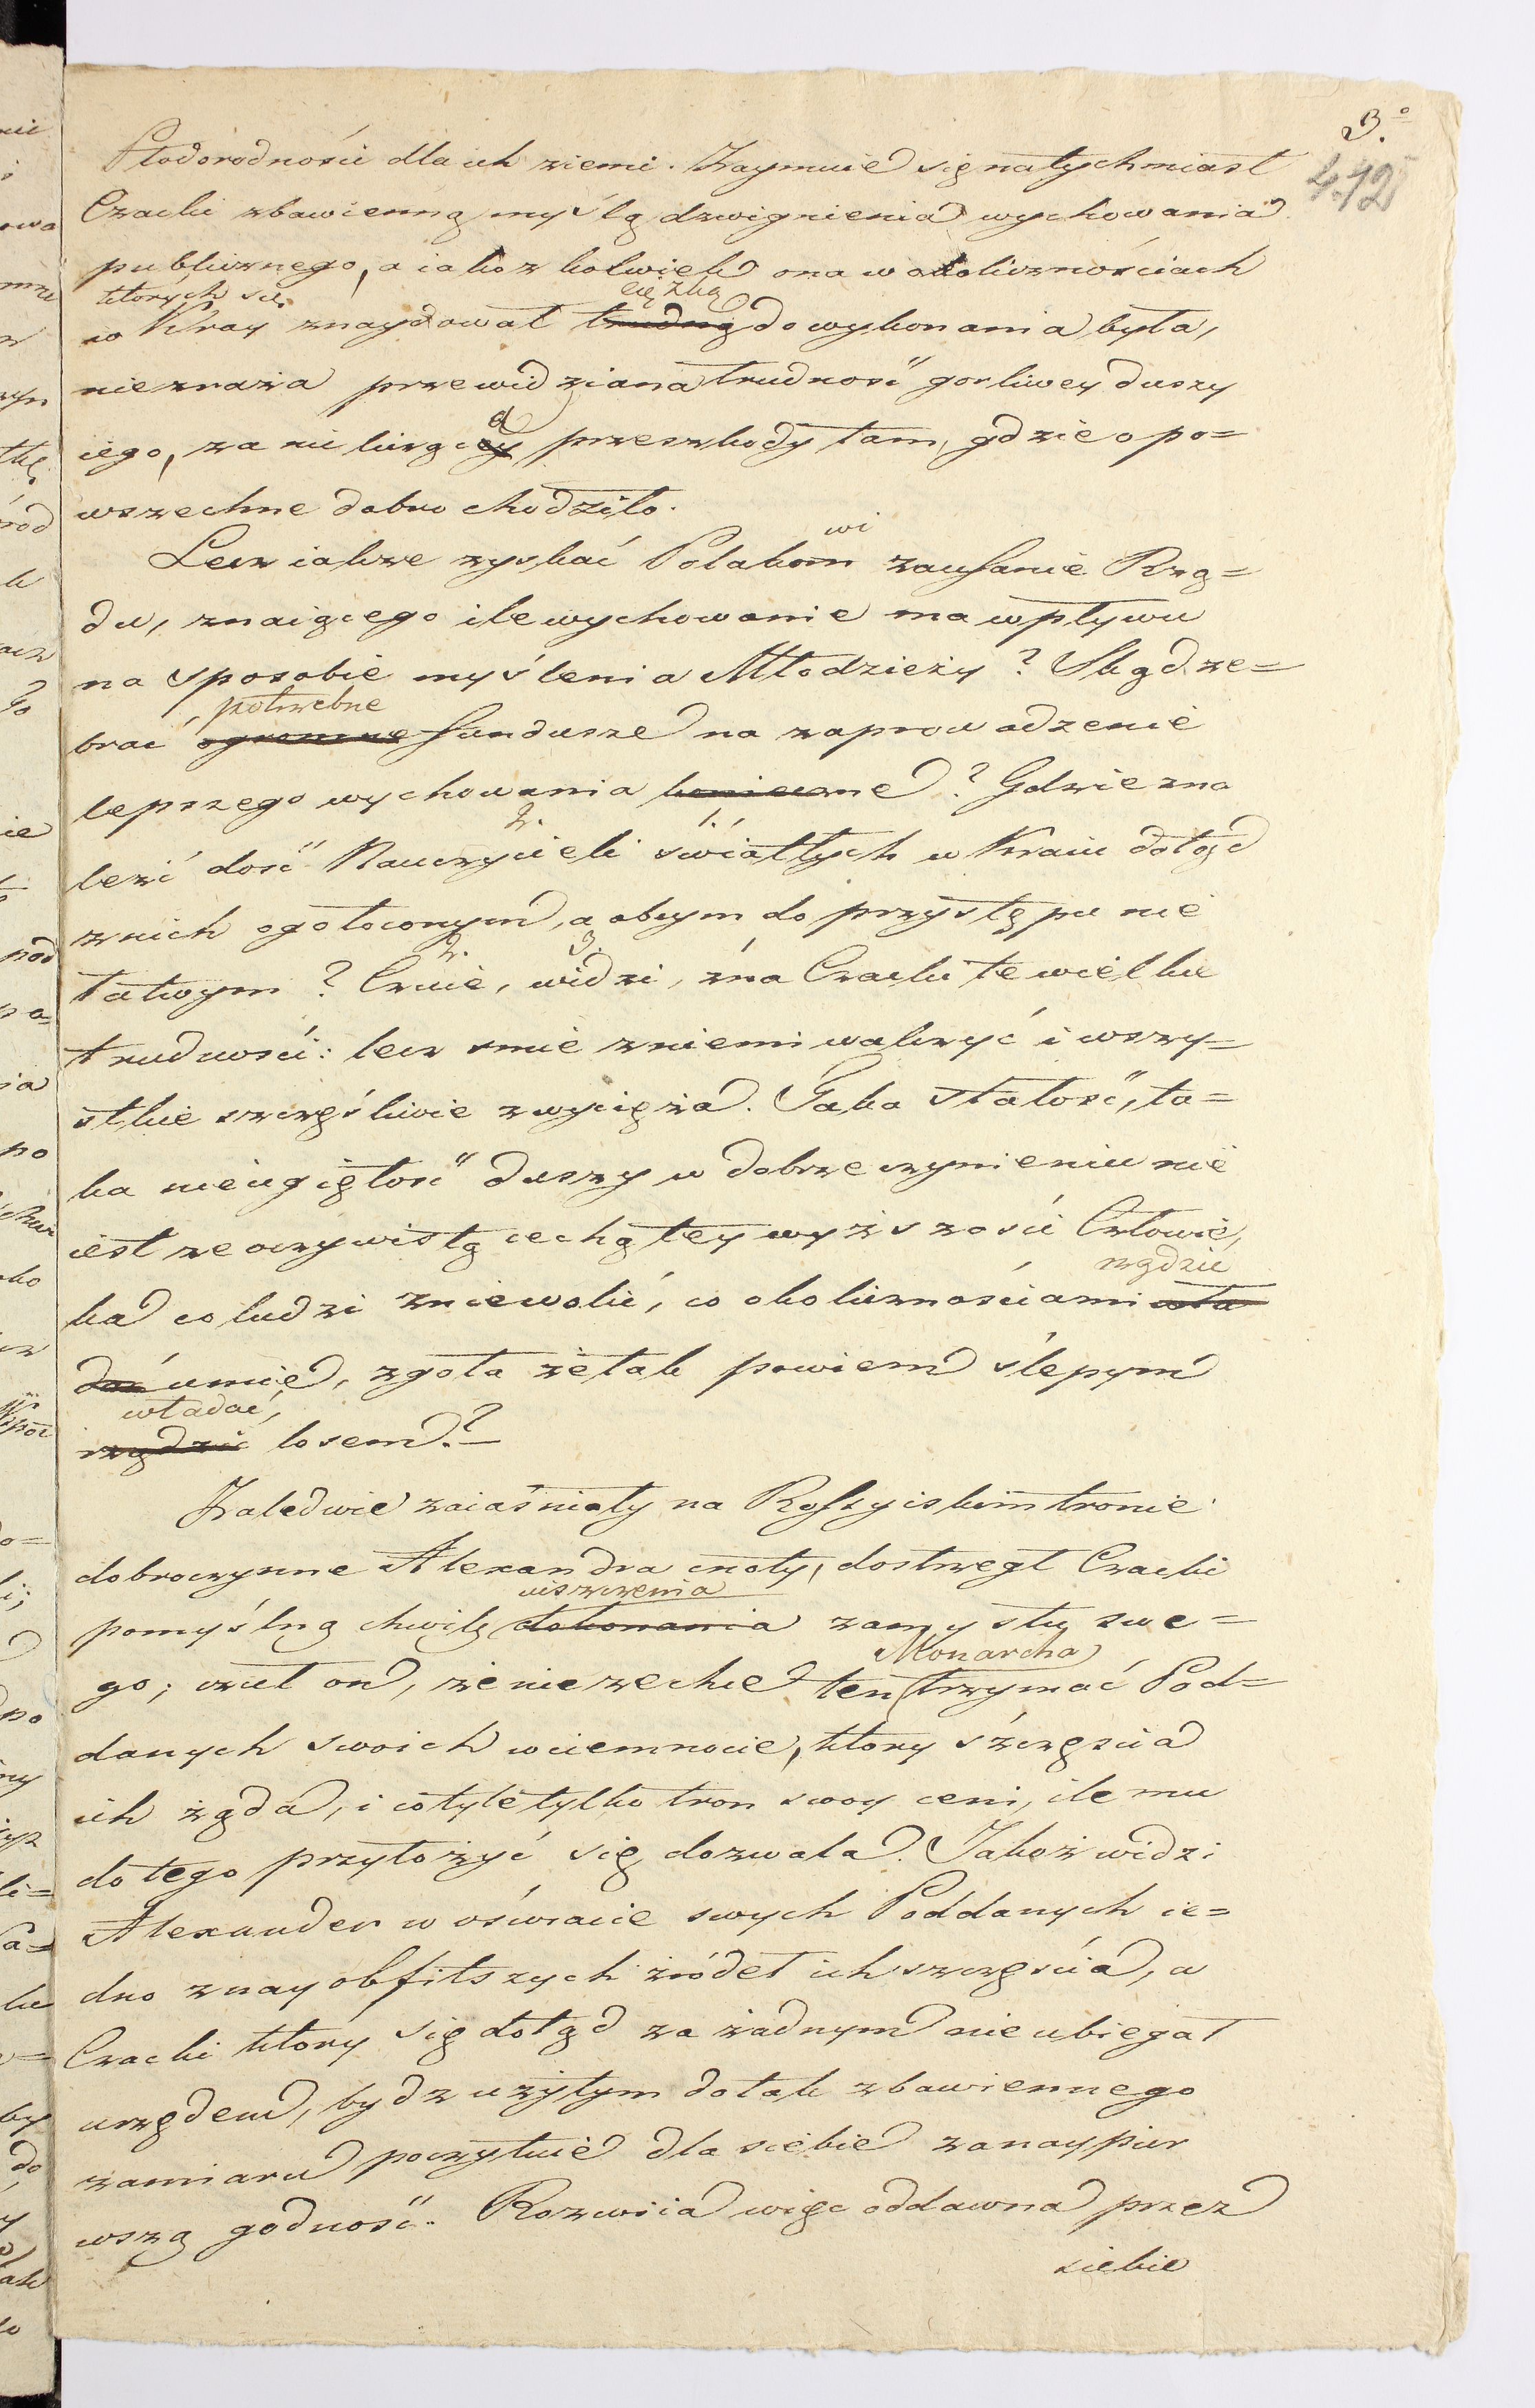 3.°
412
Płodorodności dla ich ziemi. Zaymuie się natychmiast
Czacki zbawienną myślą dzwignienia wychowania
publicznego, a iakoż kolwiek ona w okolicznościach
których się ciężką
w Kray znaydował trudną do wykonania była,
niezraża przewidziana trudność gorliwey duszy
iego, za nic liczącey a przeszkody tam, gdzie o po=
wszechne dobro chodziło.
Lecz iakże zyskać Polakom wi zaufanie Rzą=
du, znaiącego ile wychowanie ma wpływu
na sposobie myślenia Młodzieży? Skąd ze=
potrzebne
brać ogromne fundusze na zaprowadzenie
lepszego wychowania konieczne? Gdzie zna
2. 1.
leźć dość Nauczycieli światłych w Kraiu dotąd
z nich ogołoconym, a obcym do przystępu nie
2. 3.
łatwym? Czuie, widzi, zna Czacki te wielkie
trudności: lecz śmie z niemi walczyć i wszy=
stkie szczęśliwie zwycięża. Taka stałość, ta=
ka nieugiętość duszy w dobrze czynieniu nie
iest że oczywistą cechą tey wyższości Człowie,
rządzić
ka co ludzi zniewolić, co okolicznościami wła
dać umie, zgoła że tak powiem ślepym
władać,
rządzić losem?—
Zaledwie zaiaśniały na Rossyiskim tronie
dobroczynne Alexandra cnoty, dostrzegł Czacki
uiszczenia
pomyślną chwilę dokonania zamysłu swe=
Monarcha
go; czuł on, że niezechce ten trzymać Pod=
danych swoich w ciemnocie, który szczęścia
ich żąda, i o tyle tylko tron swoy ceni, ile mu
do tego przyłożyć się dozwala. Jakoż widzi
Alexander w oświacie swych Poddanych ie=
dno z nayobfitszych źródeł ich szczęścia, a
Czacki który się dotąd za żadnym nie ubiegał
urzędem, bydź użytym do tak zbawiennego
zamiaru poczytuie dla siebie za naypier
wszą godność. Rozwiia więc oddawna przez
siebie